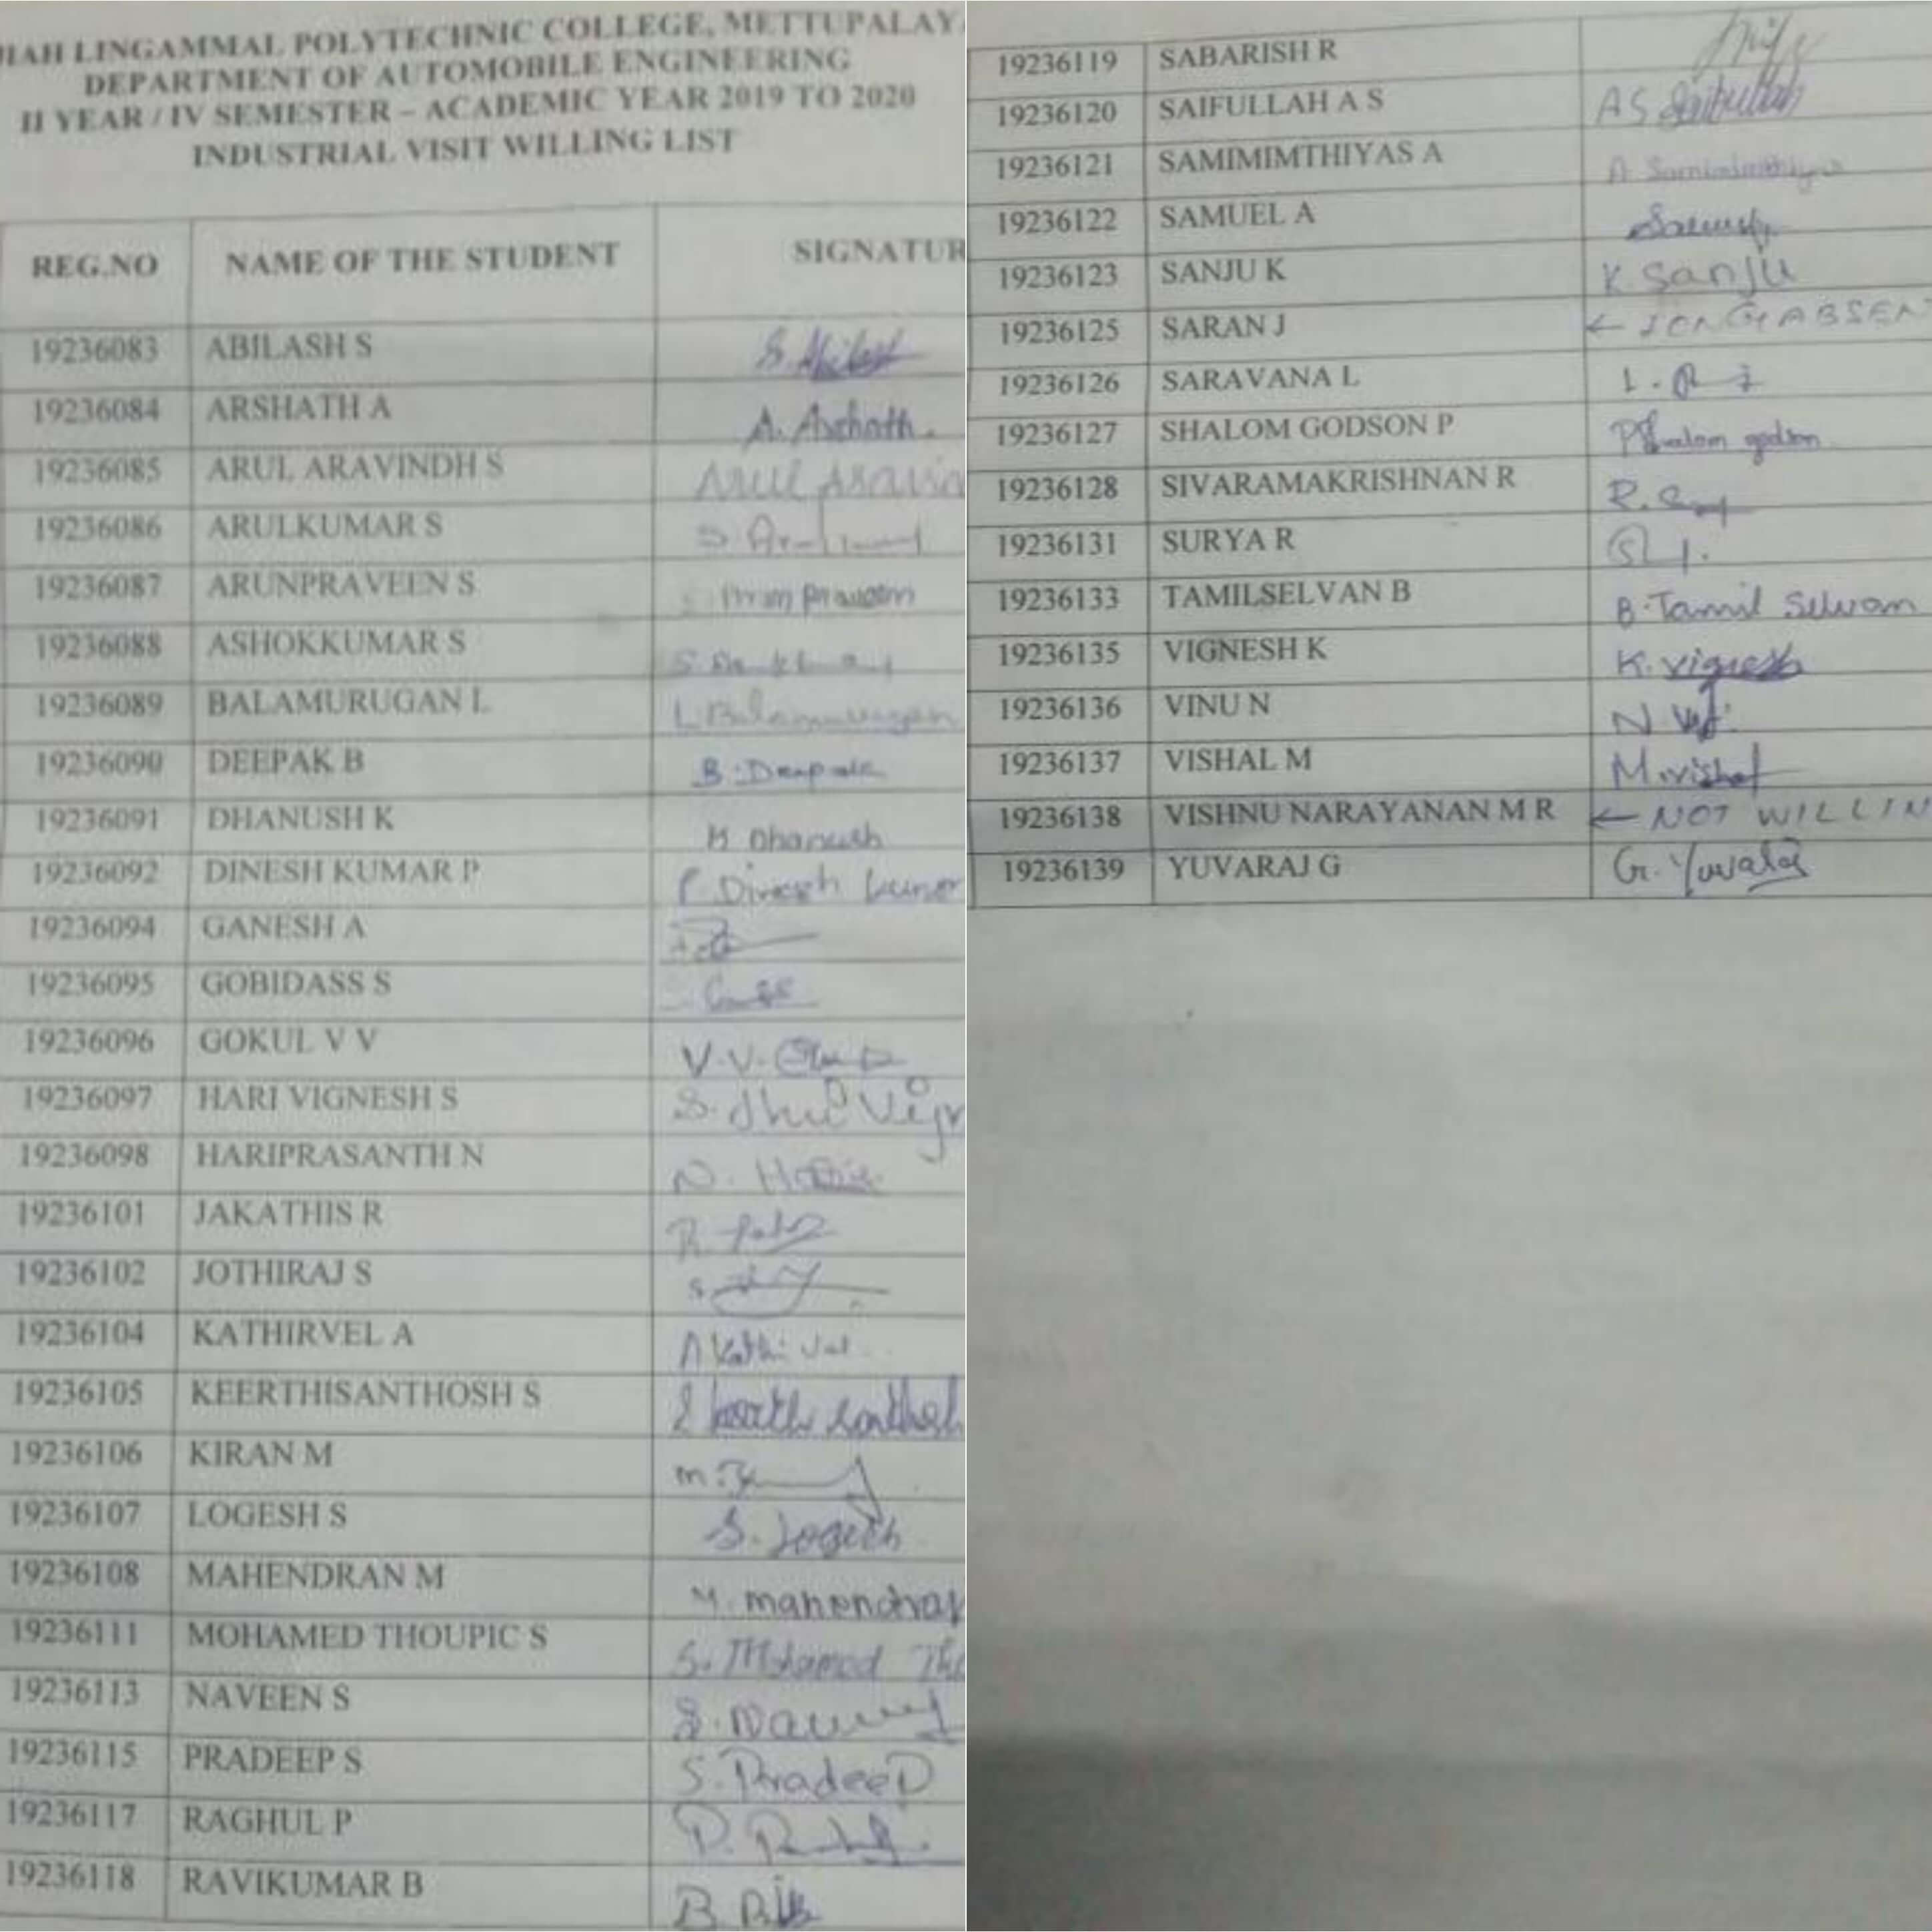 LINGAMMAL POLYTECHNIC COLLEGE, METTUPALAY
DEPARTMENT OF AUTOMOBILE ENGINEERING
II YEAR / IV SEMESTER – ACADEMIC YEAR 2019 TO 2020
INDUSTRIAL VISIT WILLING LIST
REG.NO NAME OF THE STUDENT SIGNATUR
19236083 ABILASH S S. Abilash
19236084 ARSHATH A A. Arshath.
19236085 ARUL ARAVINDH S Arul Aravin
19236086 ARULKUMAR S
19236087 ARUNPRAVEEN S
19236088 ASHOKKUMAR S
19236089 BALAMURUGAN L L. Balamurugan
19236090 DEEPAK B B. Deepak
19236091 DHANUSH K K Dhanush
19236092 DINESH KUMAR P P. Dinesh kumar
19236094 GANESH A
19236095 GOBIDASS S
19236096 GOKUL V V V.V.
19236097 HARI VIGNESH S S.
19236098 HARIPRASANTH N N.
19236101 JAKATHIS R R.
19236102 JOTHIRAJ S S
19236104 KATHIRVEL A A Kathirvel.
19236105 KEERTHISANTHOSH S S keerthi santhosh
19236106 KIRAN M m.
19236107 LOGESH S S. Logesh
19236108 MAHENDRAN M M. mahendran
19236111 MOHAMED THOUPIC S S. Mohamed Tho
19236113 NAVEEN S S.
19236115 PRADEEP S S. PradeeP
19236117 RAGHUL P P.
19236118 RAVIKUMAR B B
19236119 SABARISH R
19236120 SAIFULLAH A S A S Saifullah
19236121 SAMIMIMTHIYAS A A Samimimthiyas
19236122 SAMUEL A
19236123 SANJU K K. Sanju
19236125 SARAN J ← LONG ABSEN
19236126 SARAVANA L L.
19236127 SHALOM GODSON P P Shalom godson
19236128 SIVARAMAKRISHNAN R R.
19236131 SURYA R
19236133 TAMILSELVAN B B. Tamil Selvan
19236135 VIGNESH K K. vignesh
19236136 VINU N N.
19236137 VISHAL M M. vishal
19236138 VISHNU NARAYANAN M R ← NOT WILLIN
19236139 YUVARAJ G G. Yuvaraj